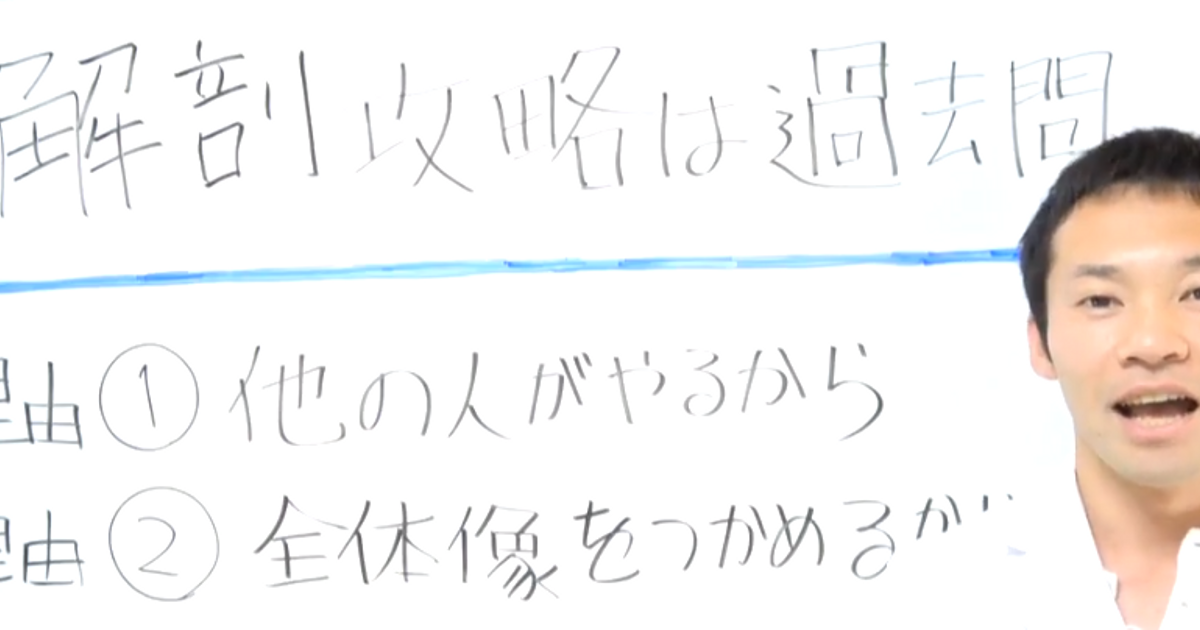 解剖攻略は過去問
理由① 他の人がやるから
理由② 全体像をつかめるか